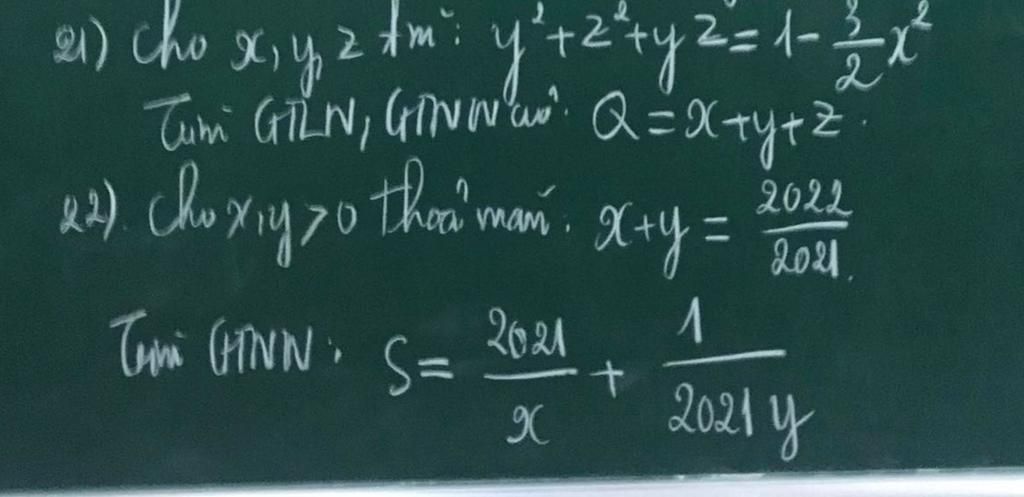 21) Cho x, y, z t/m: y² + z² + yz = 1 - \frac{3}{2}x²
Tìm GTLN, GTNN của: Q = x + y + z.
22). Cho x, y > 0 thoả mãn: x + y = \frac{2022}{2021}.
Tìm GTNN: S = \frac{2021}{x} + \frac{1}{2021y}